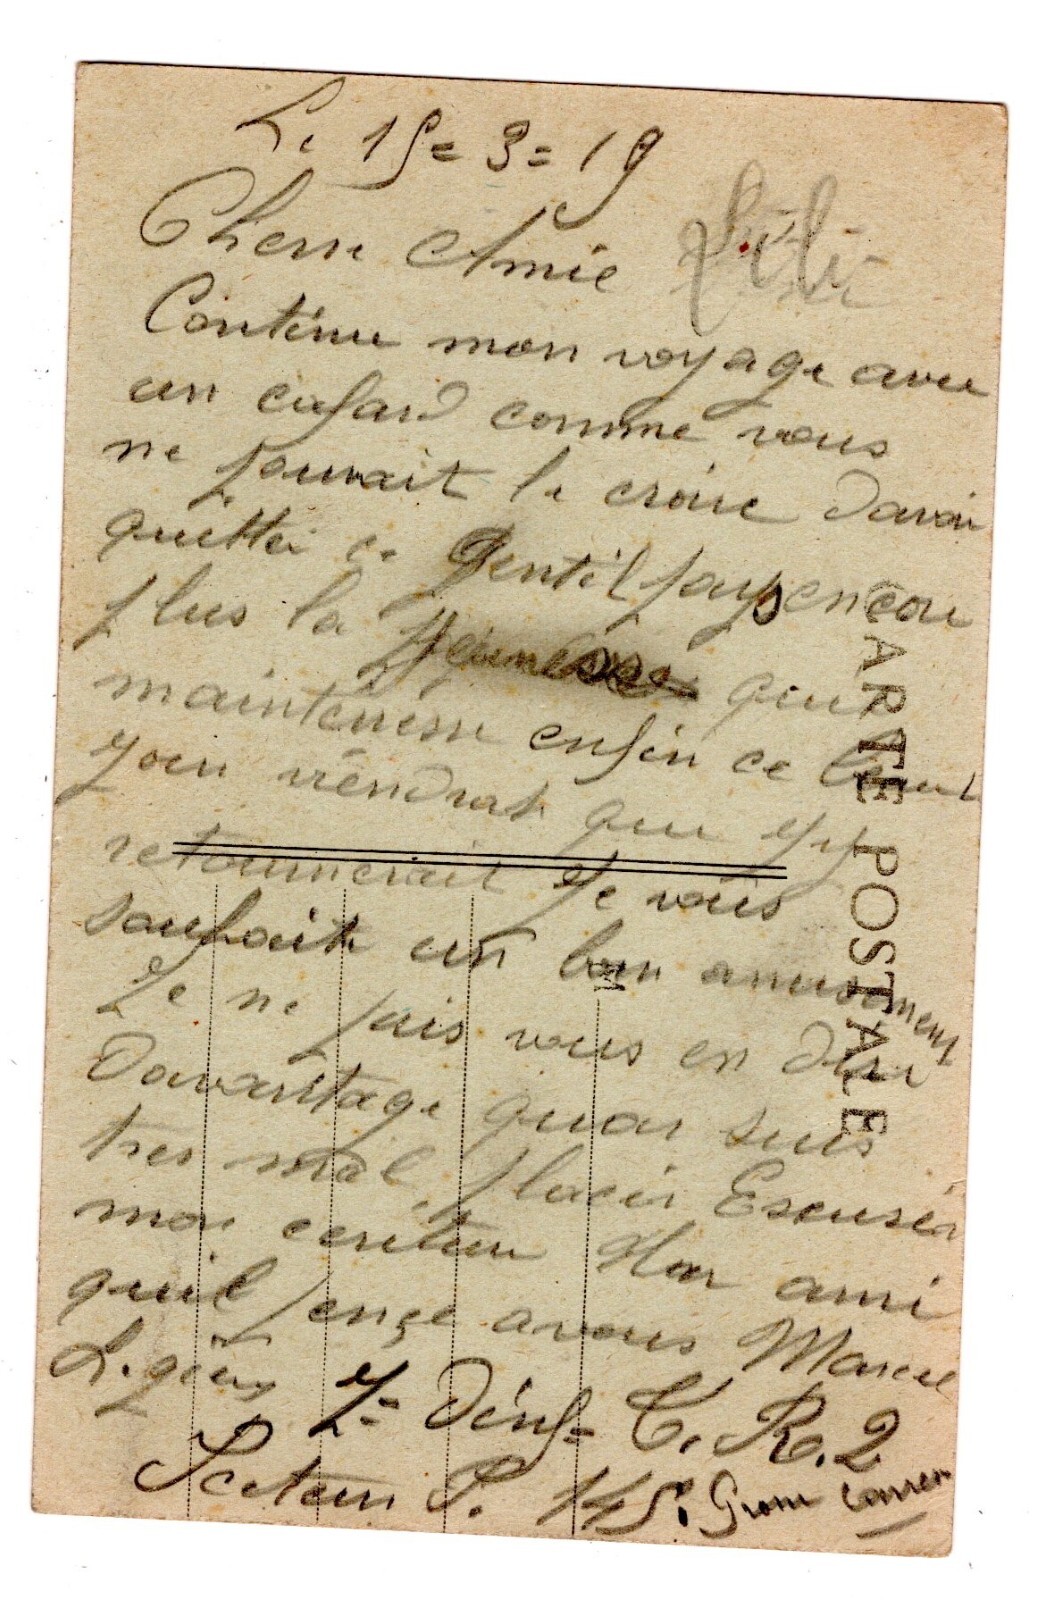 Le 15=3=19
Cherre Amie
Fifi
Continue mon voyage avec
un cafard comme vous
ne pouvait le croire davoir
quitter ce Gentil pays encore
plus la jeunesse que
maintenem enfin ce
Jour viendrat que j'y
retournerait Je vous
souhaite un bon amusement
Je ne puis vous en dire
Davantage quar suis
tres mal placer Escuser
mon ecriture Mon ami
quil pençe avous Marcel
C. R. 2
Secteur P. 145.
CARTE POSTALE